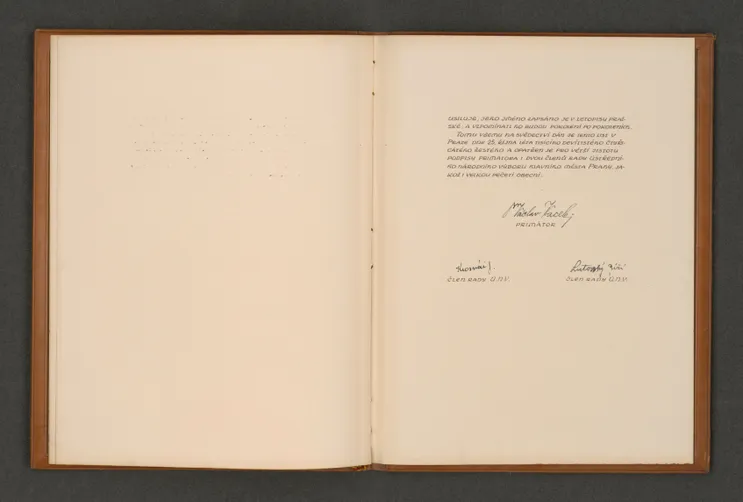 USILUJE, JEHO JMÉNO ZAPSÁNO JE V LETOPISU PRAŽ-
SKÉ, A VZPOMÍNATI HO BUDOU POKOLENÍ PO POKOLENÍCH.
TOMU VŠEMU NA SVĚDECTVÍ DÁN JE TENTO LIST V
PRAZE DNE 25. ŘÍJNA LÉTA TISÍCÍHO DEVÍTISTÉHO ČTYŘI-
CÁTÉHO ŠESTÉHO A OPATŘEN JE PRO VĚTŠÍ JISTOTU
PODPISY PRIMÁTORA I DVOU ČLENŮ RADY ÚSTŘEDNÍ-
HO NÁRODNÍHO VÝBORU HLAVNÍHO MĚSTA PRAHY, JA-
KOŽ I VELKOU PEČETÍ OBECNÍ.
Václav Vacek
PRIMÁTOR
ČLEN RADY Ú.N.V.
ČLEN RADY Ú.N.V.